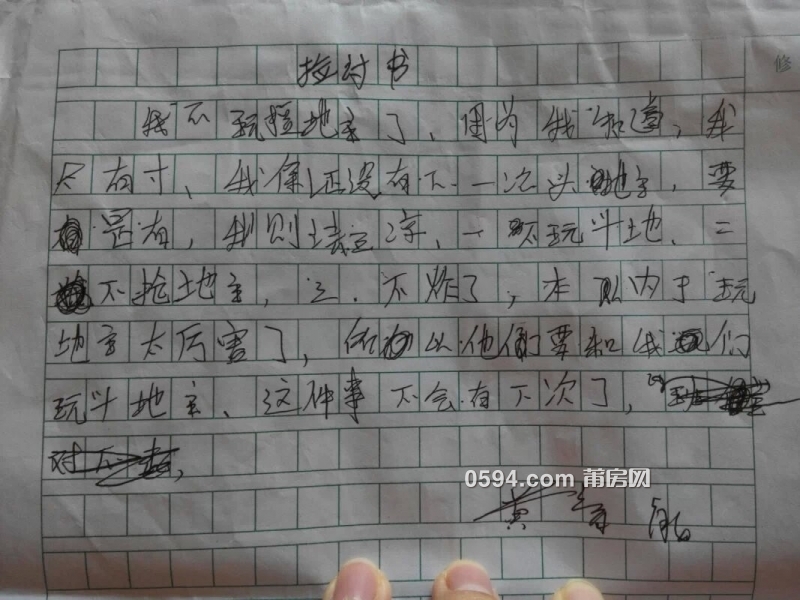 检讨书
我不玩抢地主了、因为我知道，我
只有寸、我保证没有下一次斗地主，要
是有，我则、一不玩斗地、二
不抢地主，三.不炸了，本人内于玩
地主太厉害了，所以他们要和我们
玩斗地主、这件事不会有下次了，
对不起，
0594.com 莆房网
黄
修